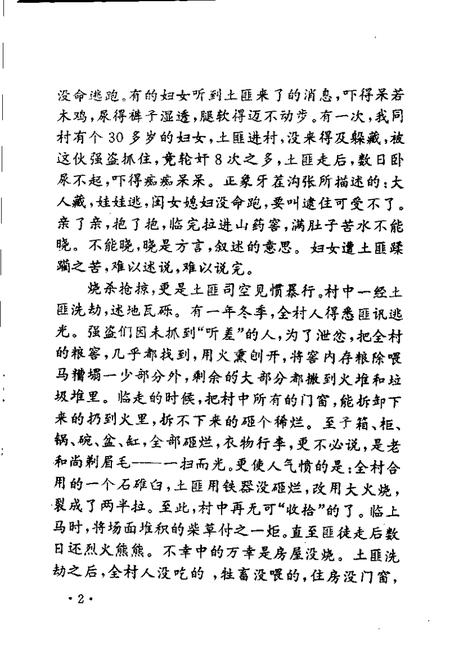 没命逃跑。有的妇女听到土匪来了的消息，吓得呆若
木鸡，尿得裤子湿透，腿软得迈不动步。有一次，我同
村有个30多岁的妇女，土匪进村，没来得及躲藏，被
这伙强盗抓住，竟轮奸8次之多，土匪走后，数日卧
尿不起，吓得痴痴呆呆。正象牙茬沟张所描述的：大
人藏，娃娃逃，闺女媳妇没命跑，要叫逮住可受不了。
亲了亲，抱了抱，临完拉进山药窖，满肚子苦水不能
晓。不能晓，晓是方言，叙述的意思。妇女遭土匪蹂
躏之苦，难以述说，难以说完。
烧杀抢掠，更是土匪司空见惯暴行。村中一经土
匪洗劫，遂地瓦砾。有一年冬季，全村人得悉匪讯逃
光。强盗们因未抓到“听差”的人，为了泄忿，把全村
的粮窖，几乎都找到，用火熏刨开，将窖内存粮除喂
马糟塌一少部分外，剩余的大部分都撒到火堆和垃
圾堆里。临走的时候，把村中所有的门窗，能拆卸下
来的扔到火里，拆不下来的砸个稀烂。至于箱、柜、
锅、碗、盆、缸，全部砸烂，衣物行李，更不必说，是老
和尚剃眉毛——一扫而光。更使人气愤的是：全村合
用的一个石碓臼，土匪用铁器没砸烂，改用大火烧，
裂成了两半拉。至此，村中再无可“收拾”的了。临上
马时，将场面堆积的柴草付之一炬。直至匪徒走后数
日还烈火熊熊。不幸中的万幸是房屋没烧。土匪洗
劫之后，全村人没吃的，牲畜没喂的，住房没门窗，
·2·